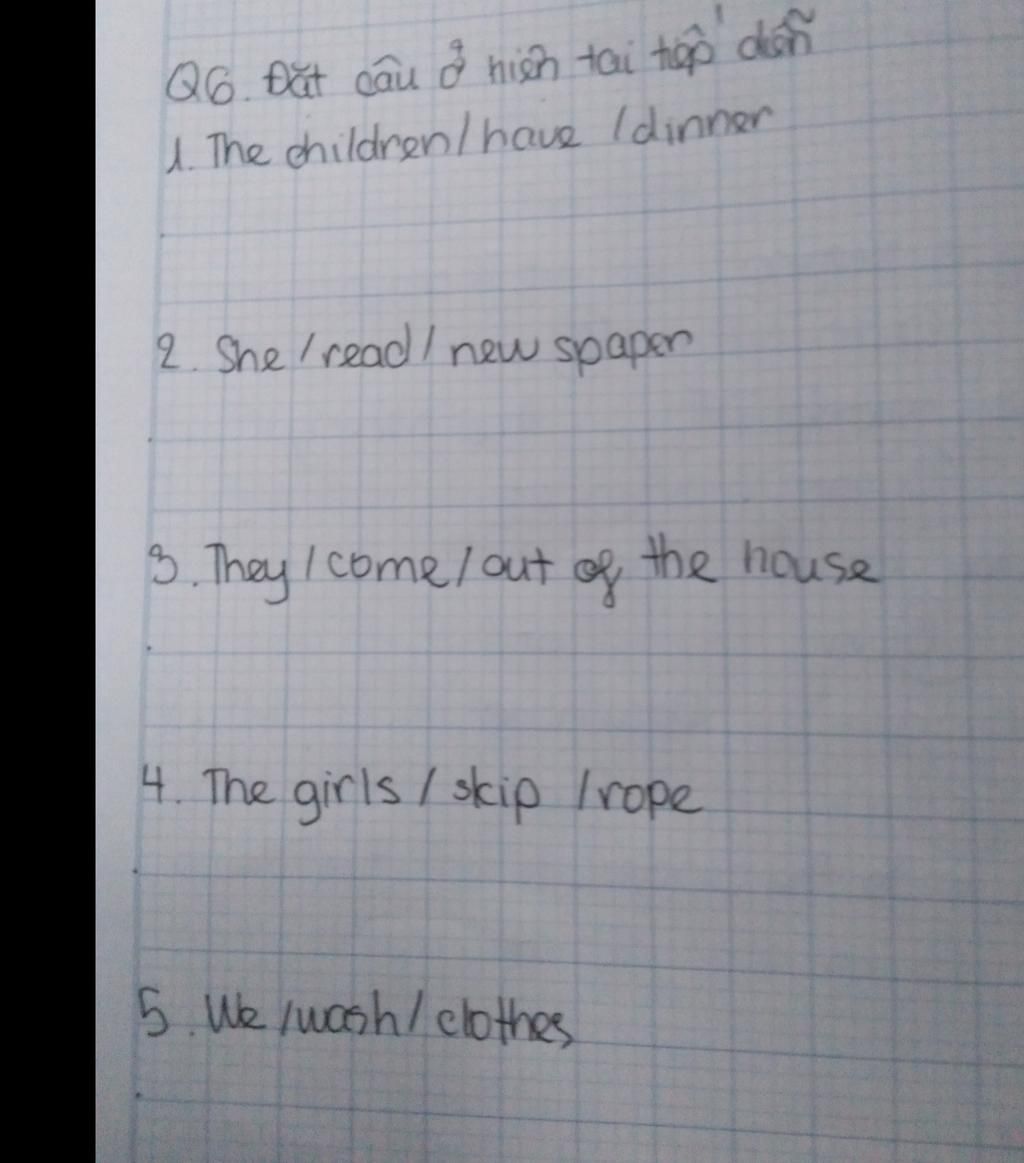 Q6. Đặt câu ở hiện tại tiếp diễn
1. The children / have / dinner
2. She / read / new spaper
3. They / come / out of the house
4. The girls / skip / rope
5. We / wash / clothes